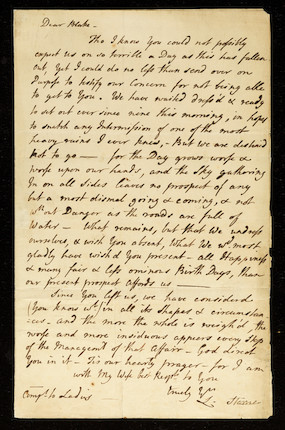 Dear Blake -
Tho I know You could not possibly
expect us on so terrible a Day as this has fallen
out, Yet I could do no less than send over on
Purpose to testify our Concern for not being able
to get to You. We have waited dress'd & ready
to set out ever since nine this morning, in hopes
to snatch any Intermission of one of the most
heavy rains I ever knew, - But we are destined
not to go — for the Day grows worse &
worse upon our hands, and the Sky gathering
In on all Sides leaves no prospect of any
but a most dismal going & coming, & not
wthout Danger as the roads are full of
Water — What remains, but that We undress
ourselves, & wish You absent, What We wd most
gladly have wish'd You present — all Happyness
& many fair & less ominous Birth Days, than
our present prospect affords us —
Since You left us, we have considered
(You know wt) in all its Shapes & circumstan
=ces - and the more the whole is weigh'd, the
worse and more insiduous appears every Step
of the Managemt of that Affair - God direct
You in it - Tis our hearty prayer - for I am
with My Wife's best Respts to You
Truely Yrs
L: Sterne
Compts to Ladies